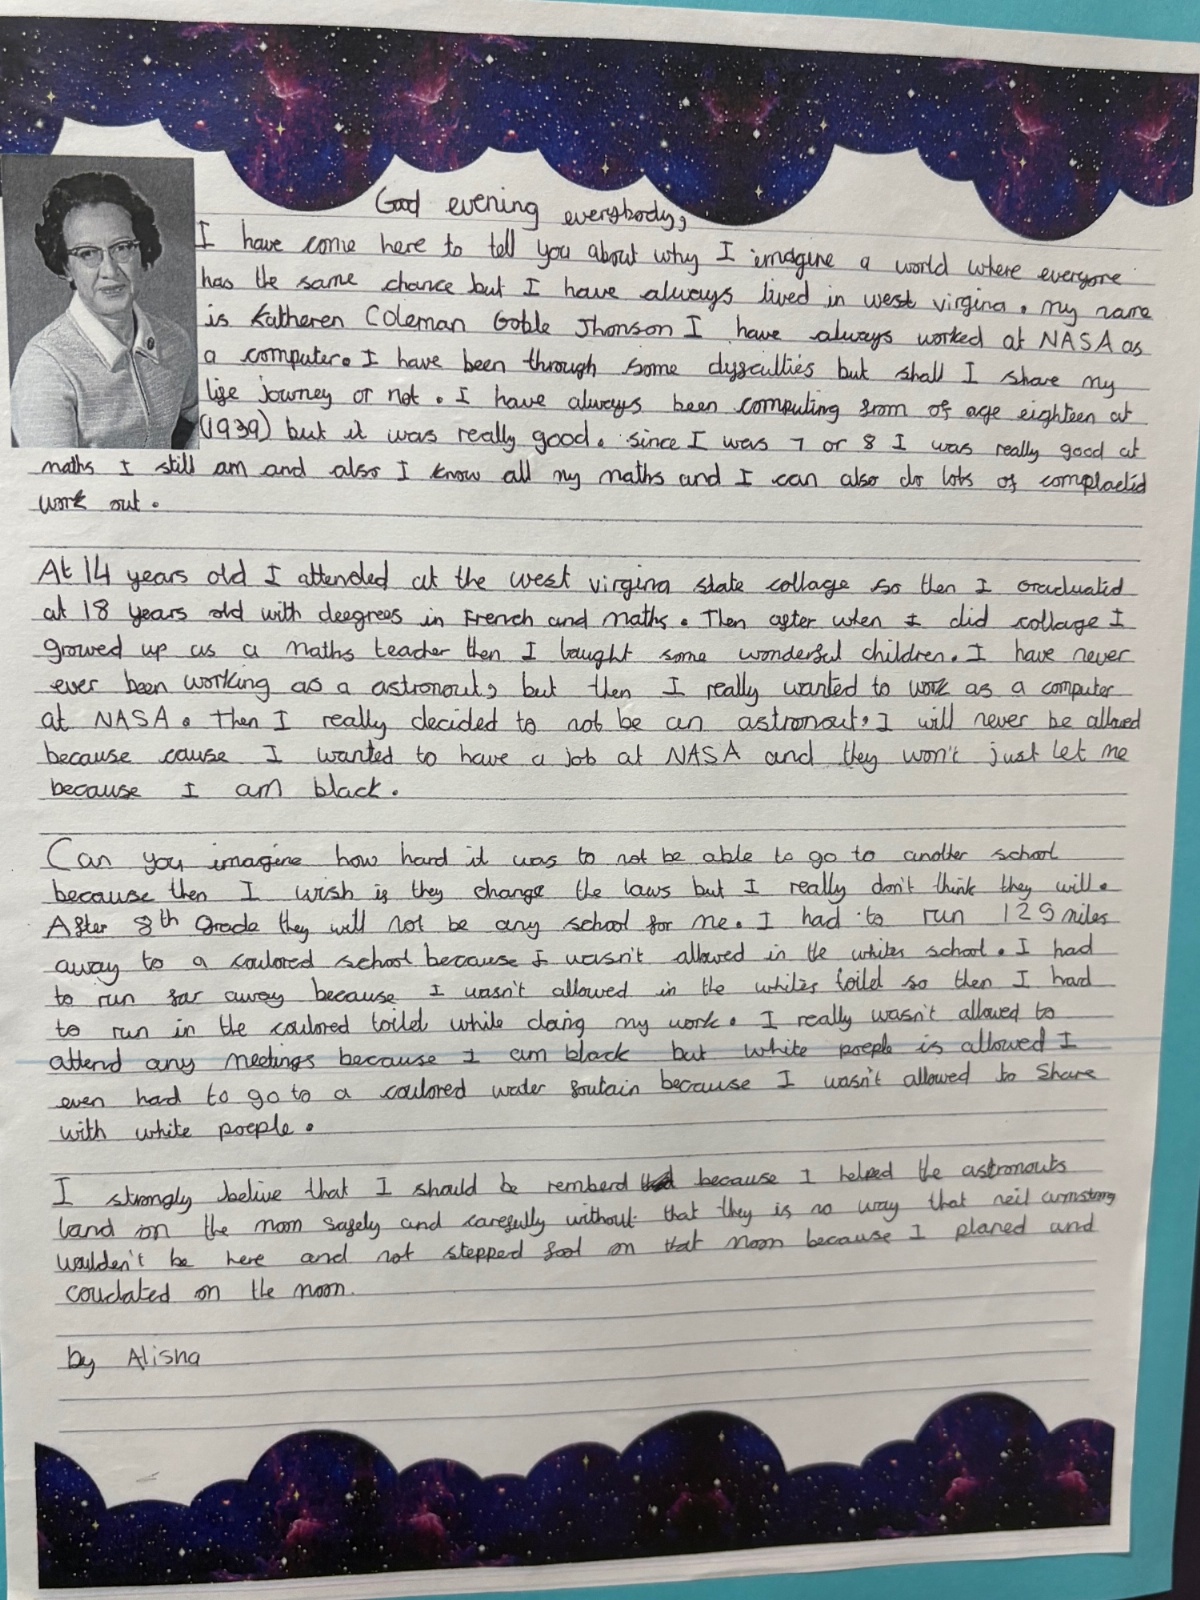 Good evening everybody,
I have come here to tell you about why I imagine a world where everyone
has the same chance but I have always lived in west virgina. my name
is Katheren Coleman Goble Jhonson I have always worked at NASA as
a computer. I have been through some dysficulties but shall I share my
life journey or not. I have always been computing from of age eighteen at
(1939) but it was really good. since I was 7 or 8 I was really good at
maths I still am and also I know all my maths and I can also do lots of complactid
work out.
At 14 years old I attended at the west virgina state collage so then I Graduatid
at 18 years old with deegrees in French and maths. Then after when I did collage I
growed up as a maths teacher then I taught some wonderful children. I have never
ever been working as a astronout, but then I really wanted to work as a computer
at NASA. Then I really decided to not be an astronout, I will never be allowed
because cause I wanted to have a job at NASA and they won't just let me
because I am black.
Can you imagine how hard it was to not be able to go to another school
because then I wish if they change the laws but I really don't think they will.
After 8th Grade they will not be any school for me. I had to run 125 miles
away to a coulored school because I wasn't allowed in the whites school. I had
to run far away because I wasn't allowed in the whites toilet so then I had
to run in the coulored toilet while doing my work. I really wasn't allowed to
attend any meetings because I am black but white poeple is allowed I
even had to go to a coulored water foutain because I wasn't allowed to share
with white poeple.
I strongly belive that I should be remberd because I helped the astronouts
land on the moon safely and carefully without that they is no way that neil armstrong
wouldn't be here and not stepped foot on that moon because I planed and
couclated on the moon.
by Alisha